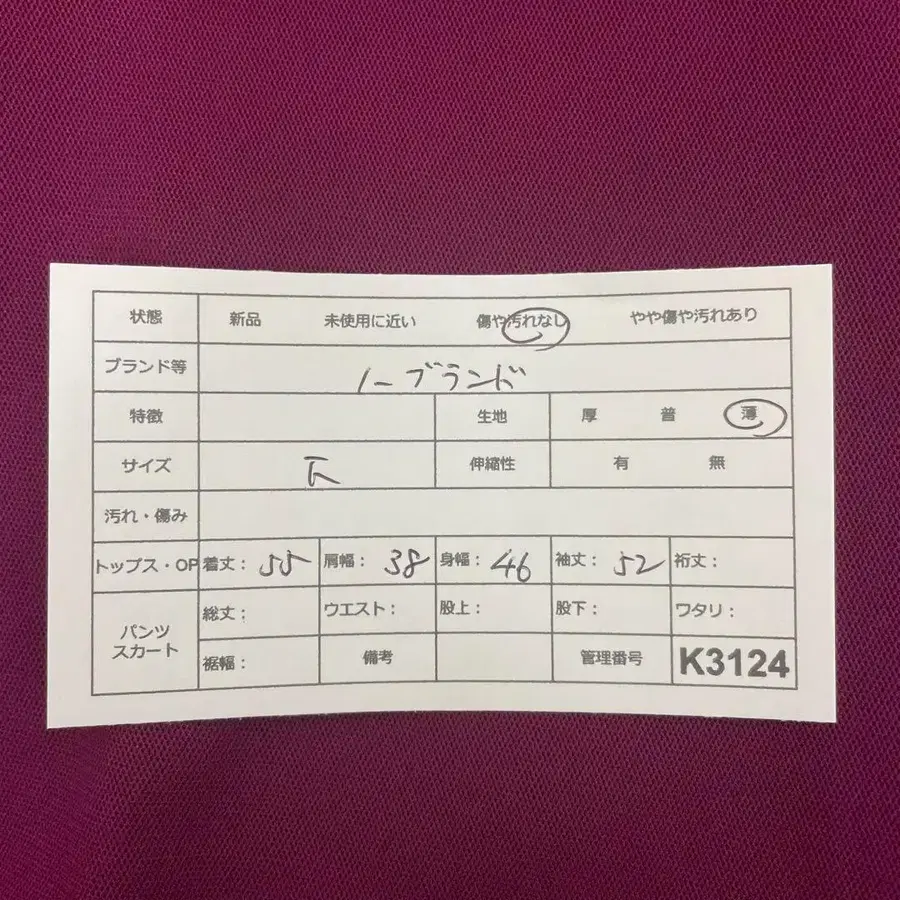 状態 新品 未使用に近い 傷や汚れなし やや傷や汚れあり
ブランド等 ノーブランド
特徴 生地 厚 普 薄
サイズ 伸縮性 有 無
汚れ・傷み
トップス・OP 着丈: 55 肩幅: 38 身幅: 46 袖丈: 52 裄丈:
パンツ 総丈: ウエスト: 股上: 股下: ワタリ:
スカート 裾幅: 備考 管理番号 K3124